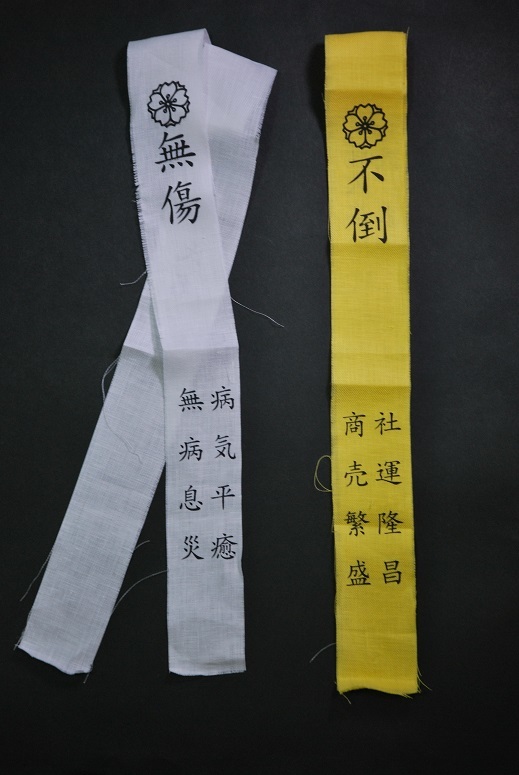 無傷
病気平癒
無病息災
不倒
社運隆昌
商売繁盛